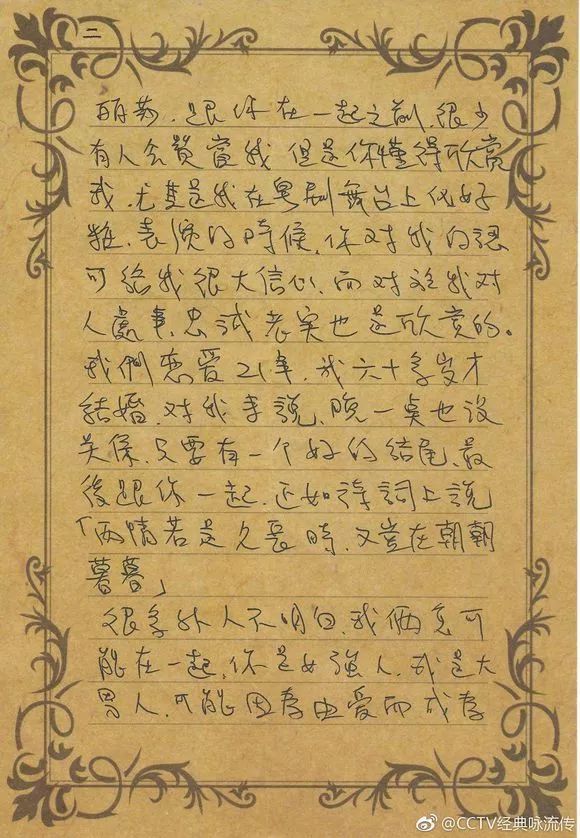 二
丽莎,跟你在一起之前,很少
有人会赞賞我,但是你懂得欣赏
我,尤其是我在粤剧舞台上化好
粧,表演的時候,你对我的認
可给我很大信心,而对於我对
人處事,忠诚老实也是欣赏的。
我們恋爱21年,我六十多岁才
结婚,对我来說,晚一点也没
关係,只要有一个好的结尾,最
後跟你一起,正如诗詞上說
「两情若是久長時,又豈在朝朝
暮暮」
很多外人不明白,我俩怎可
能在一起,你是女強人,我是大
男人,可能因为由爱而成为
@CCTV经典咏流传